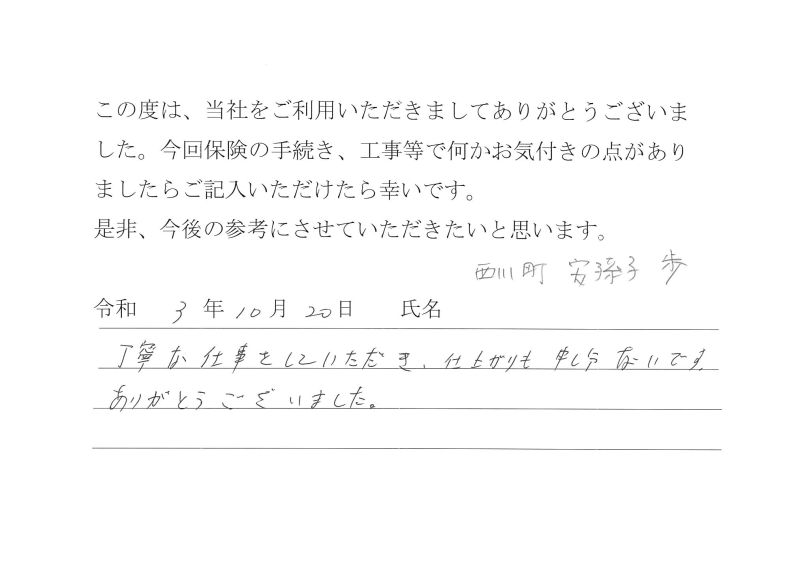 この度は、当社をご利用いただきましてありがとうございま
した。今回保険の手続き、工事等で何かお気付きの点があり
ましたらご記入いただけたら幸いです。
是非、今後の参考にさせていただきたいと思います。
西川町 安孫子 歩
令和 3 年 10 月 20 日 氏名
丁寧な仕事をしていただき、仕上がりも申し分ないです。
ありがとうございました。